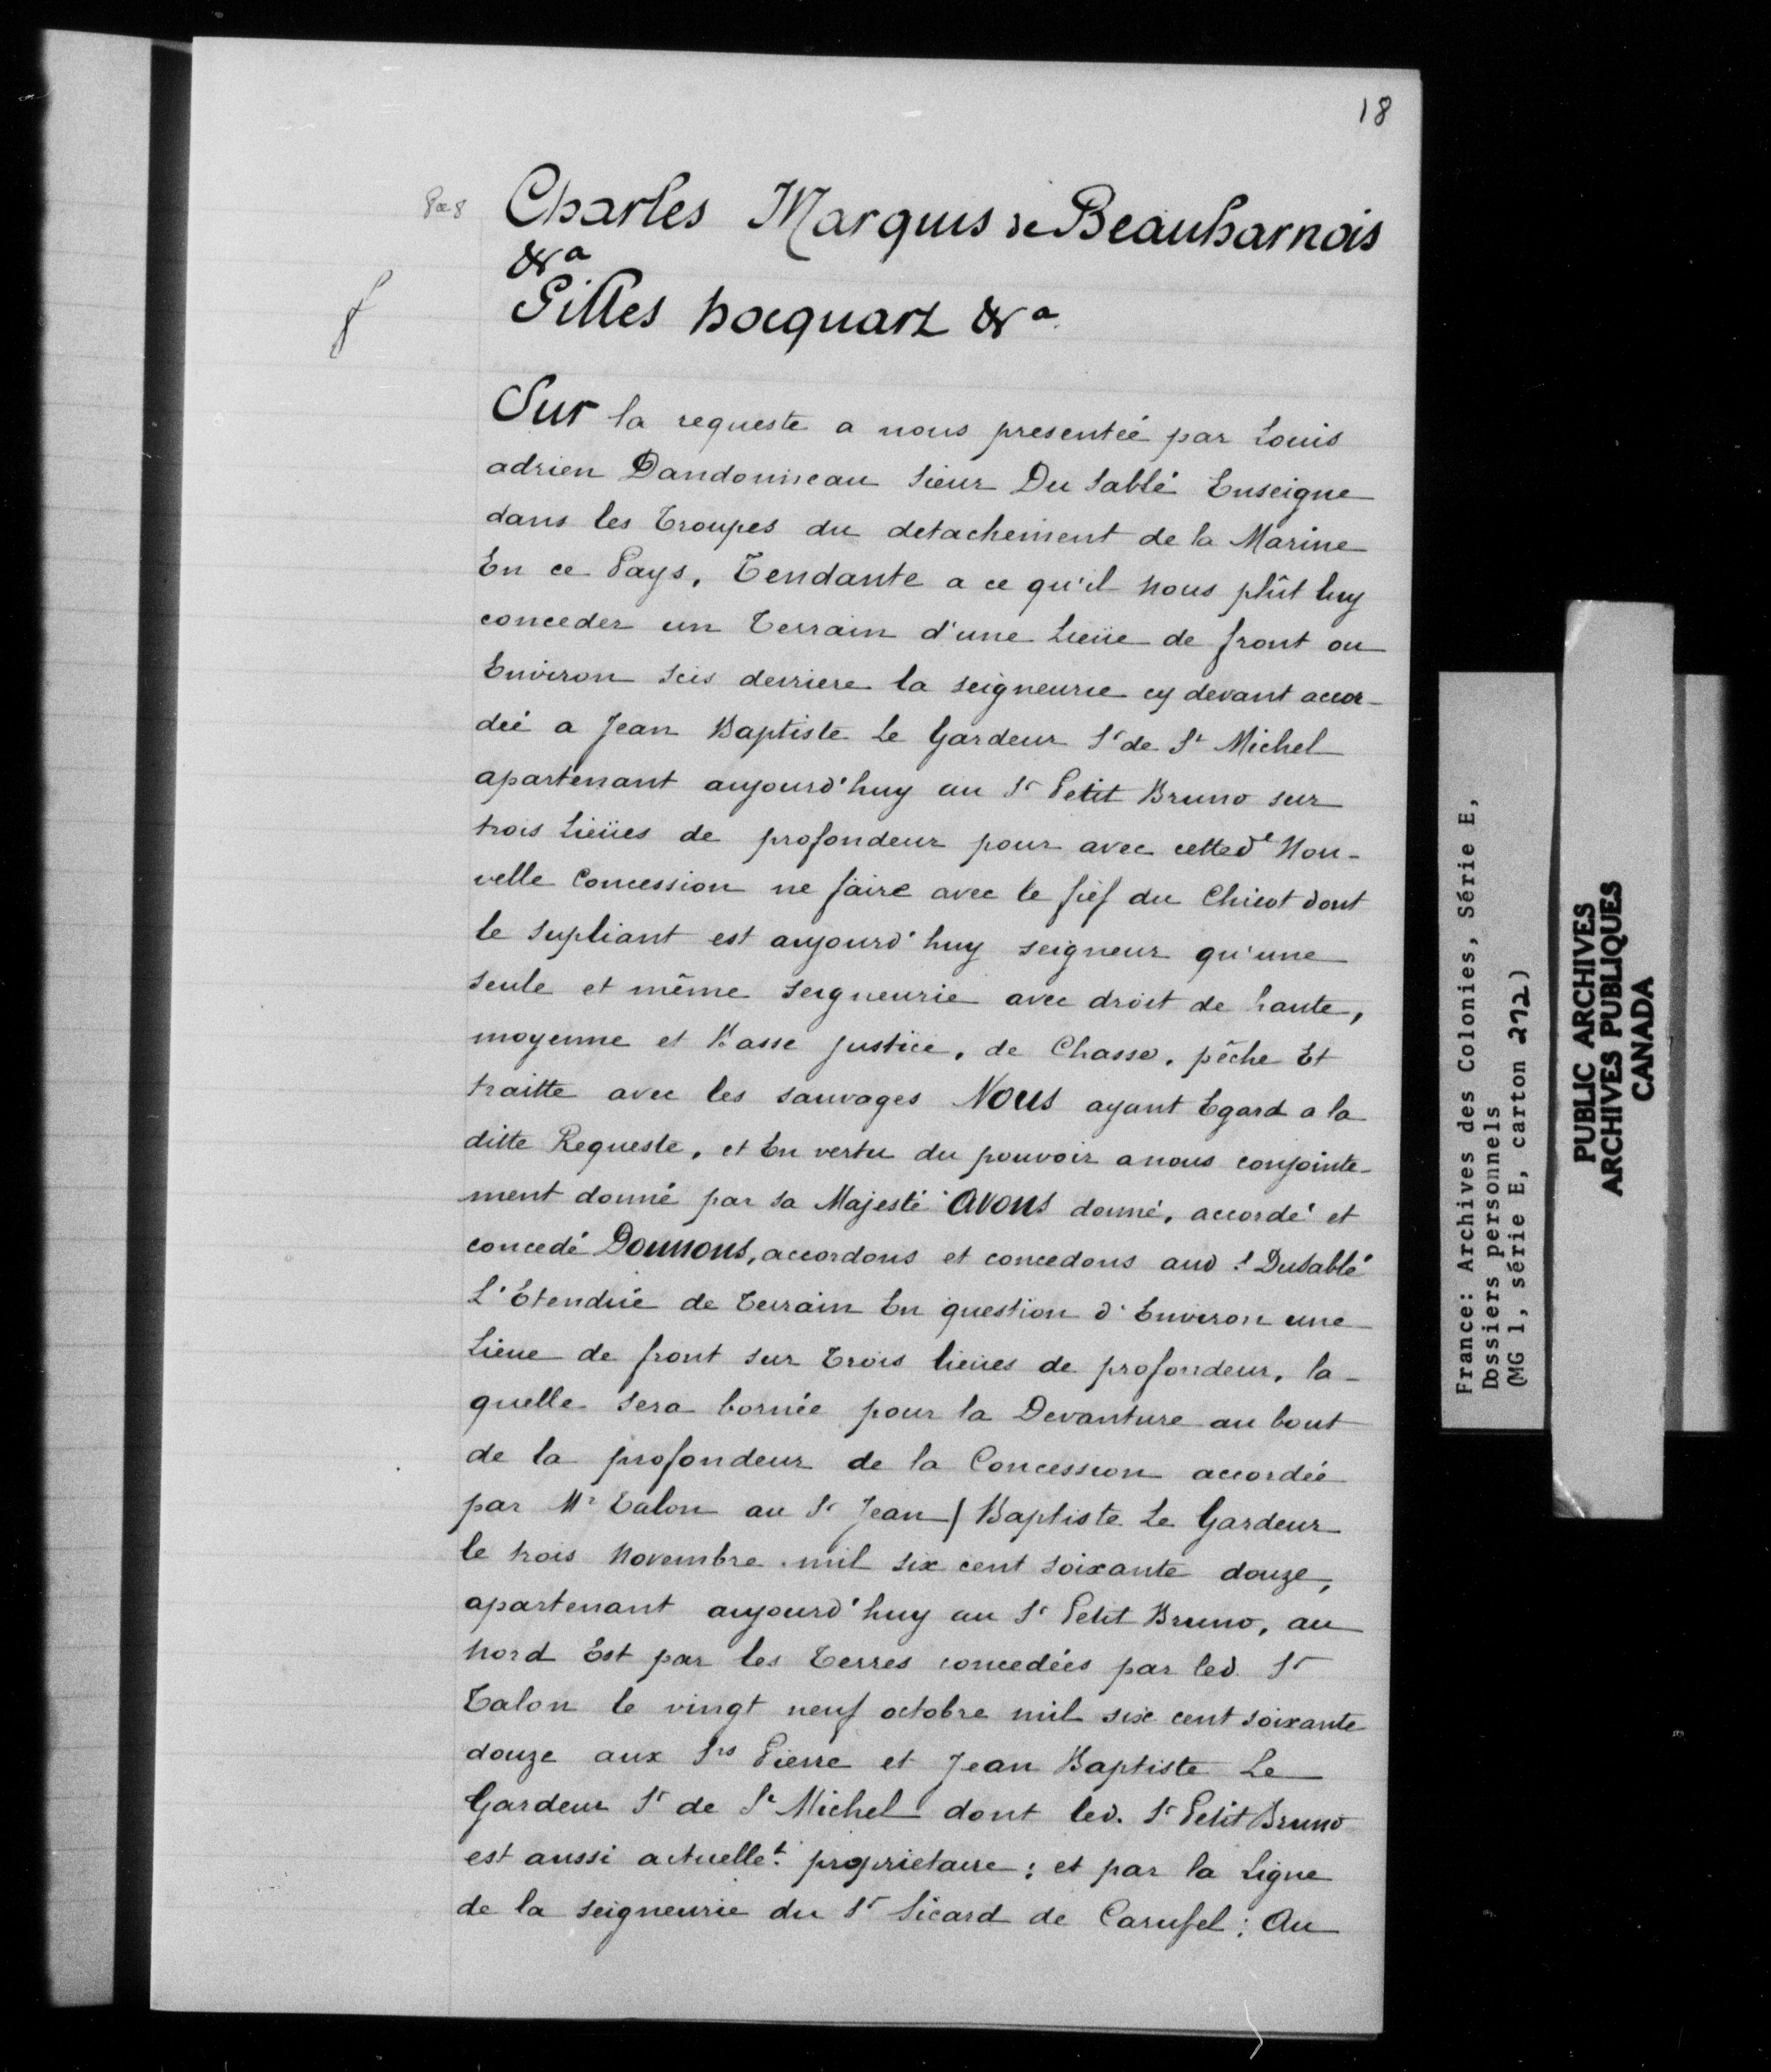 18
Charles Marquis de Beauharnois
&a
Gilles hocquart &a
Sur la requeste a nous presentée par Louis
adrien Dandonneau Sieur Du Sablé Enseigne
dans les Troupes du detachement de la Marine
En ce Pays, Tendante a ce qu'il Nous plût luy
conceder un Terrain d'une Lieüe de front ou
Environ scis derriere la seigneurie cy devant accor-
dée a Jean Baptiste Le Gardeur Sr de St Michel
apartenant aujourd'huy au Sr Petit Bruno sur
trois Lieües de profondeur pour avec cetted.e Nou-
velle Concession ne faire avec le fief du Chicot dont
le supliant est aujourd'huy seigneur qu'une
seule et même seigneurie avec droit de haute,
moyenne et Basse justice, de Chasse, pêche Et
traitte avec les sauvages Nous ayant Egard a la
ditte Requeste, et En vertu du pouvoir a nous conjointe-
ment donné par sa Majesté avons donné, accordé et
concedé Donnons, accordons et concedons aud. S. Dusablé
L'Etendüe de Terrain En question d'Environ une
Lieue de front sur Trois lieües de profondeur, la-
quelle sera bornée pour la Devanture au bout
de la profondeur de la Concession accordée
par Mr Talon au Sr Jean / Baptiste Le Gardeur
le trois Novembre mil six cent soixante douze,
apartenant aujourd'huy au Sr Petit Bruno, au
Nord Est par les Terres concedées par led. Sr
Talon le vingt neuf octobre mil six cent soixante
douze aux Srs Pierre et Jean Baptiste Le
Gardeur Sr de St Michel dont led. Sr Petit Bruno
est aussi actuellet. proprietaire ; et par la Ligne
de la seigneurie du Sr Sicard de Carufel ; Au
France: Archives des Colonies, Série E,
Dossiers personnels
(MG 1, série E, carton 272)
PUBLIC ARCHIVES
ARCHIVES PUBLIQUES
CANADA